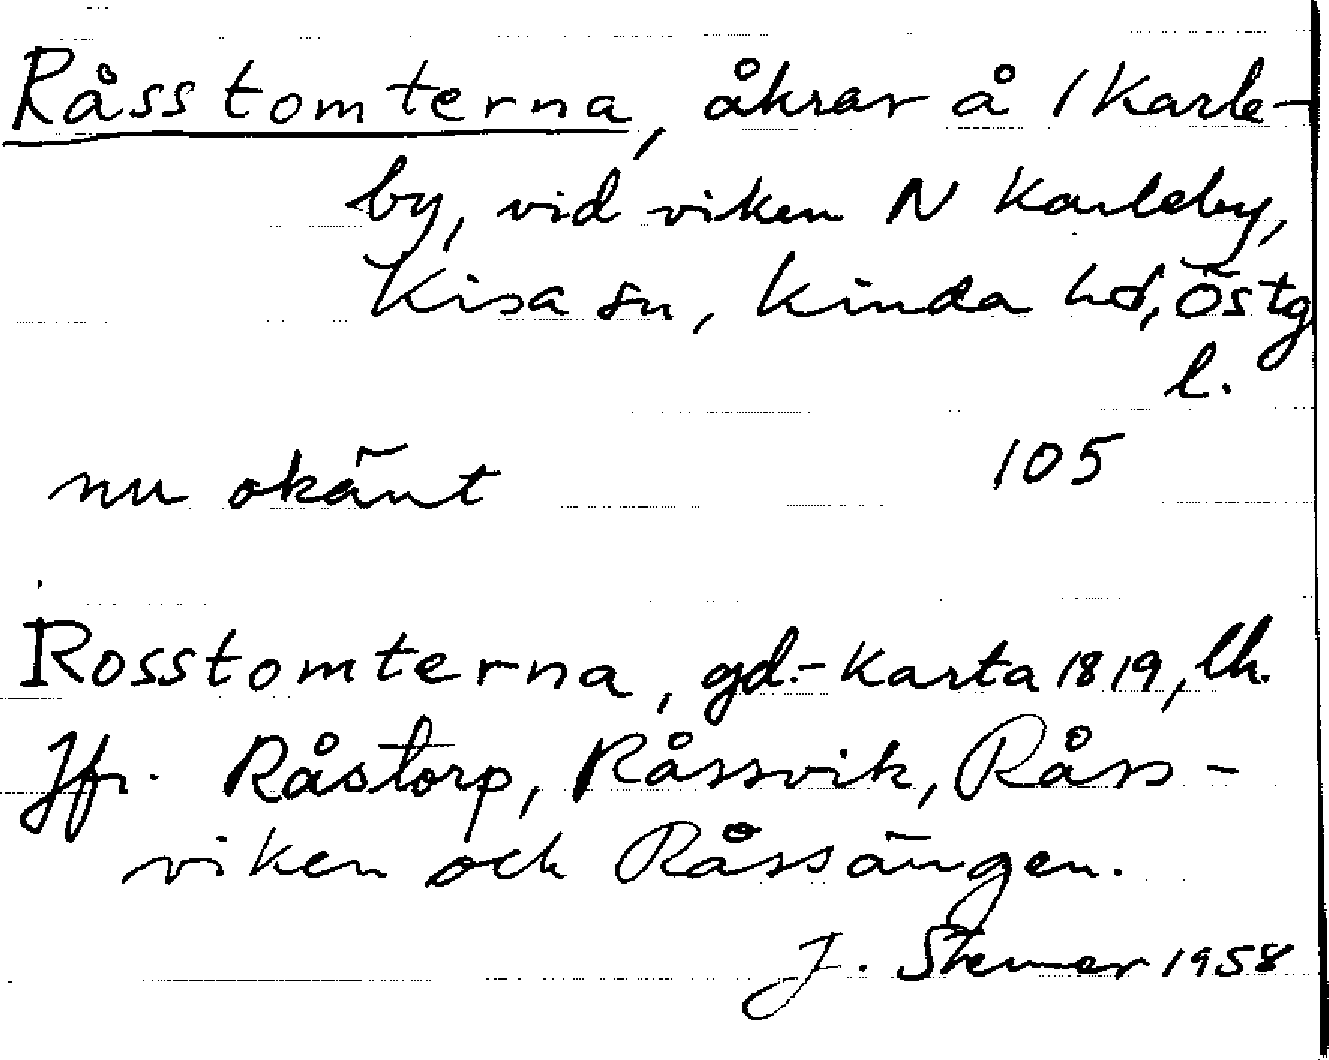 Råsstomterna, åkrar å 1 Karle-
by, vid viken N Karleby,
Kisa sn, Kinda hd, Östg
l.
nu okänt 105
Rosstomterna, gd.-karta 1819, lh.
Jfr. Råstorp, Råssvik, Råss-
viken och Råssängen.
J. Stemer 1958